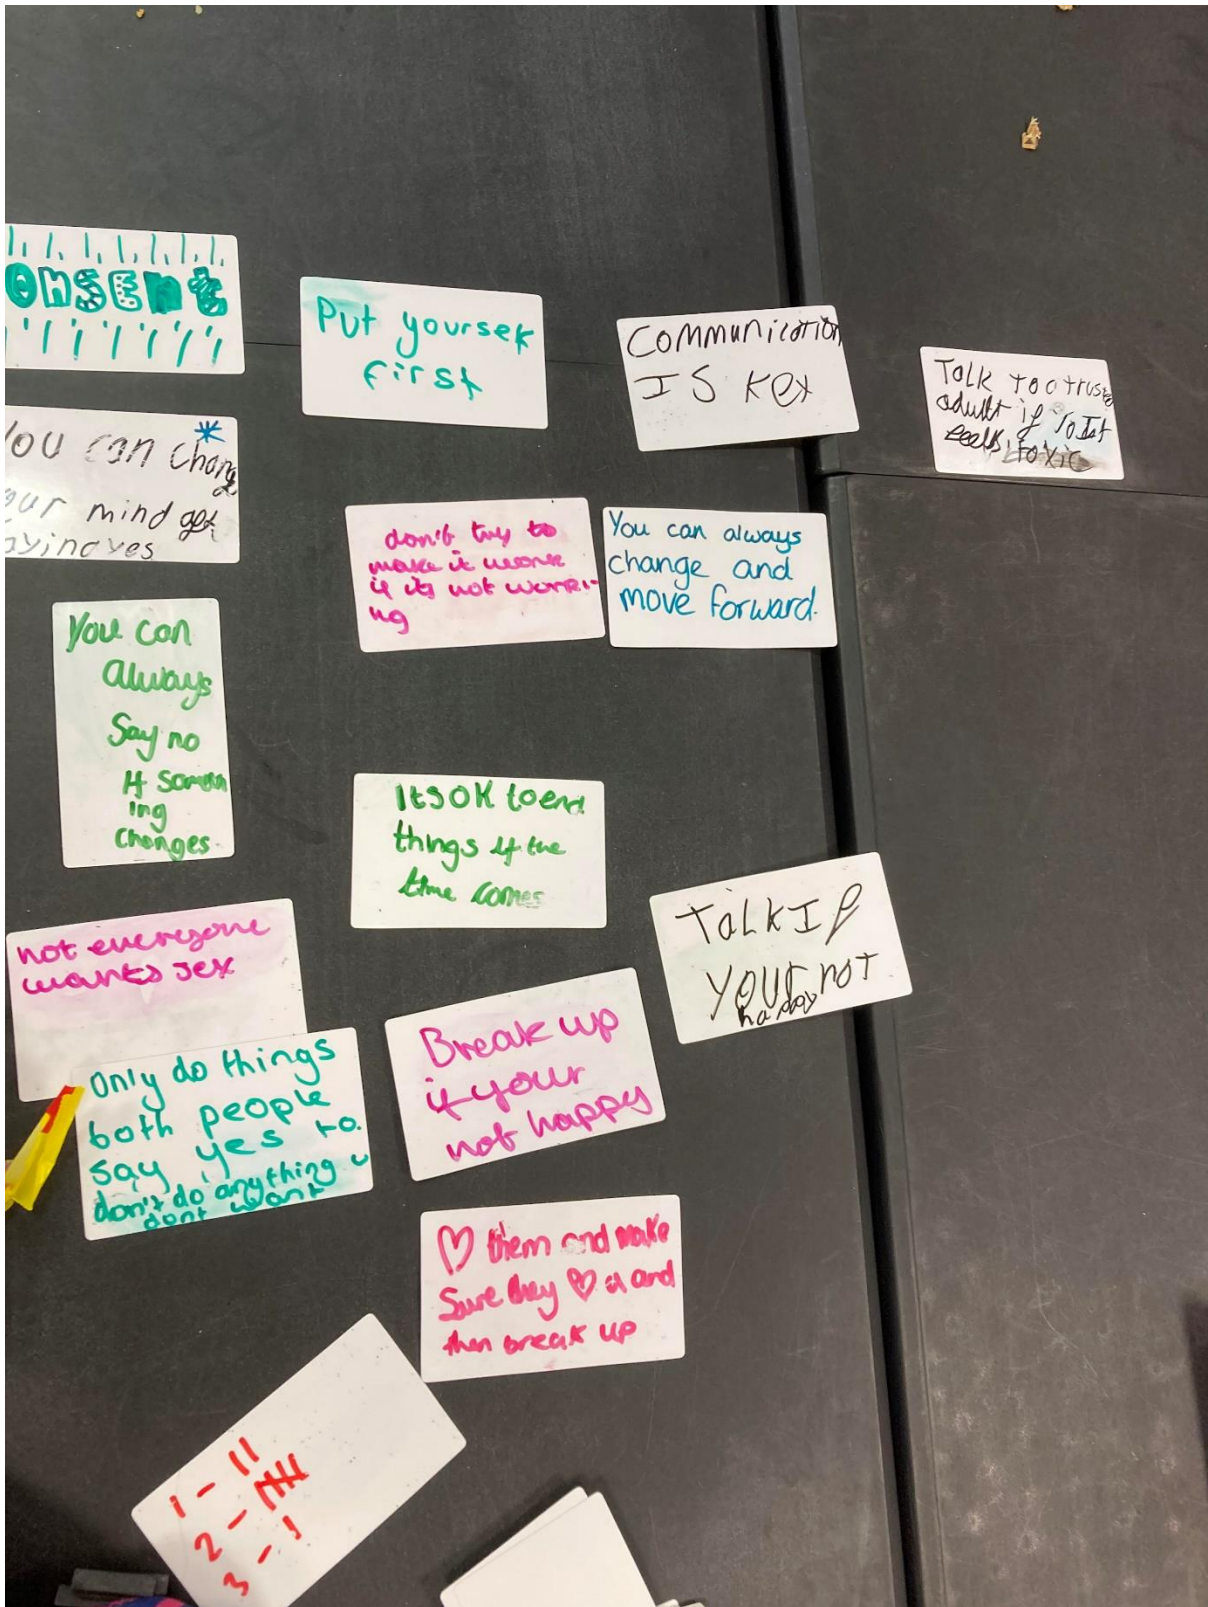 onsent
Put yourself
first
COMMUNICATION
IS Key
Talk to a trusted
adult if
toxic
you can change
our mind
ayind yes
don't try to
make it work
if its not worki-
ng
You can always
change and
move forward.
You can
always
Say no
If
ing
changes
Its OK to end
things if the
time comes
not everyone
wants sex
Talk If
your not
happy
Only do things
both people
say yes to.
don't do anything u
dont want
Break up
if your
not happy
♡ them and make
Sure they ♡ u and
then break up
1 - II
2 - IIII
3 - I